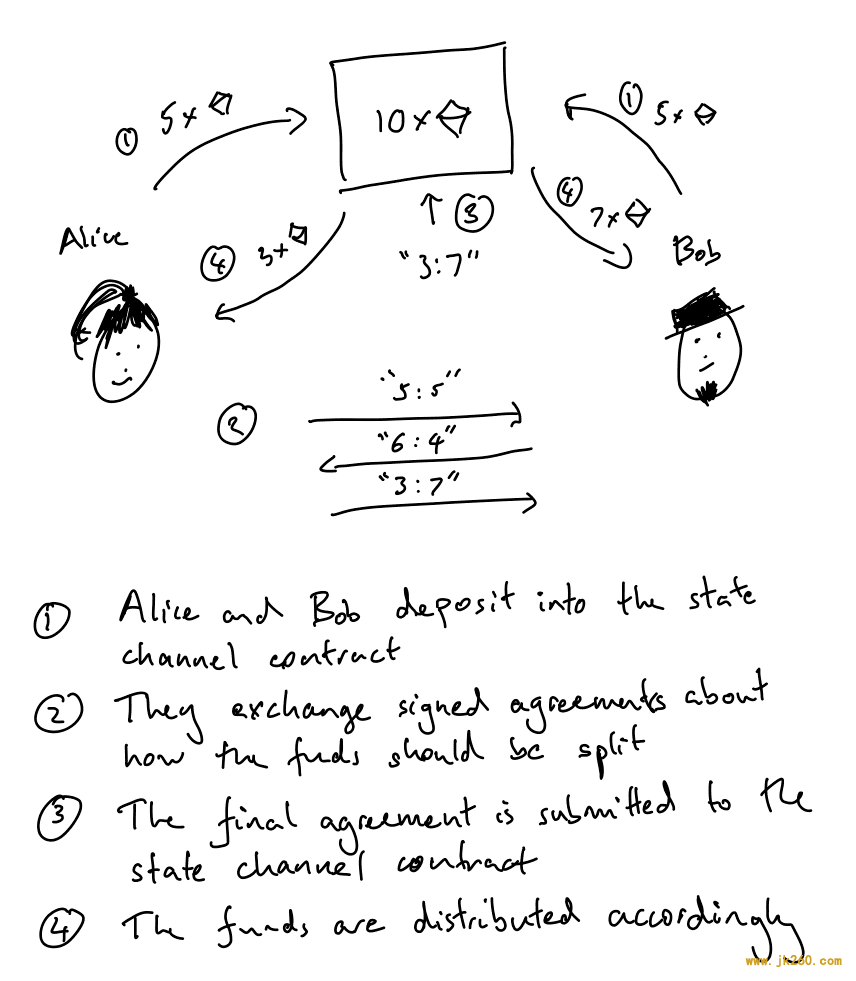 ① 5x
10x
① 5x
④ 7x
Alice
④ 3x
↑ ③
"3:7"
Bob
②
"5:5"
"6:4"
"3:7"
① Alice and Bob deposit into the state
channel contract
② They exchange signed agreements about
how the funds should be split
③ The final agreement is submitted to the
state channel contract
④ The funds are distributed accordingly
www.jk260.com